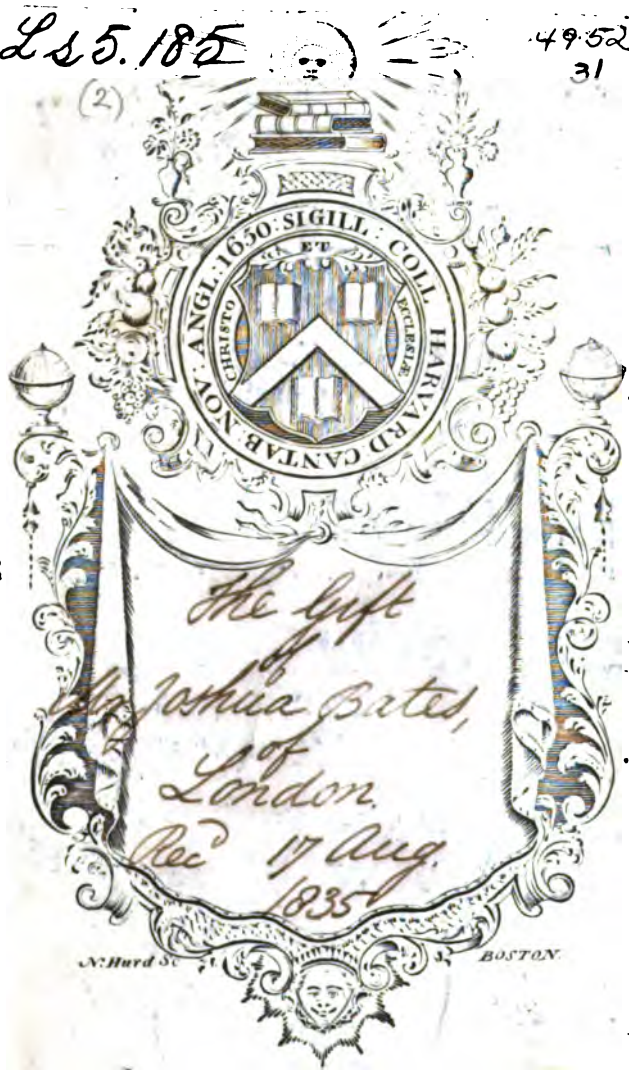 Ls 5.185
49.52
31
(2)
SIGILL : COLL HARVARD CANTAB. NOV. ANGL : 1650 :
CHRISTO ET ECCLESIÆ
The Gift
of
Mr. Joshua Bates,
of
London.
Recd 17 Aug.
1835
N. Hurd Sc
BOSTON.